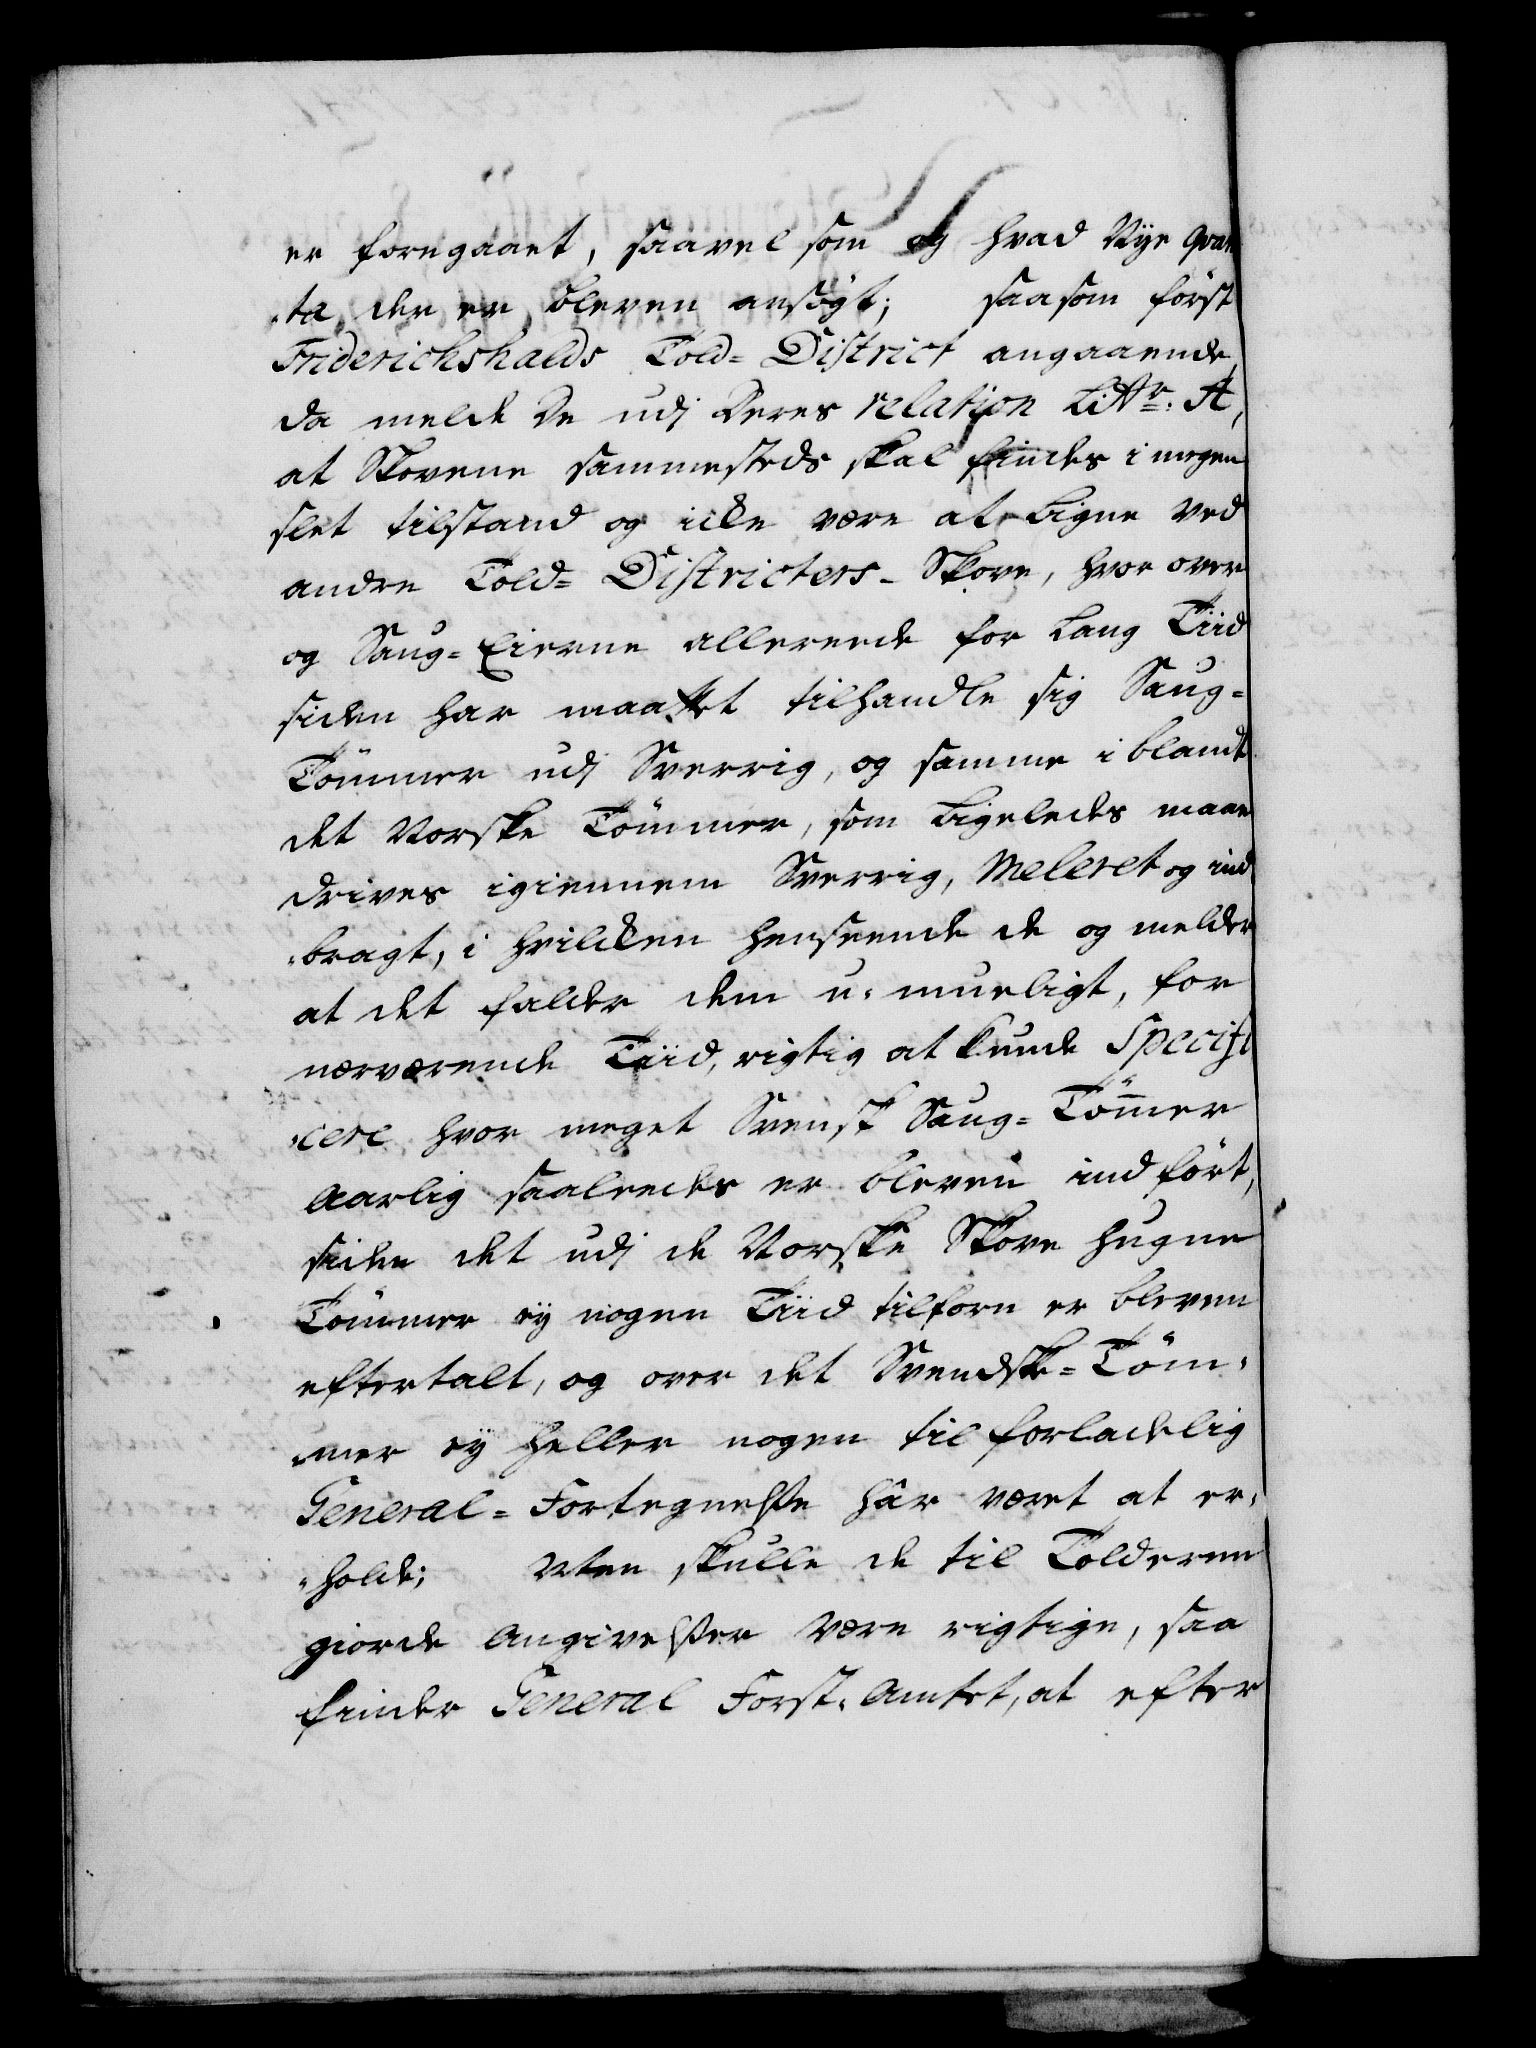 er foregaaet, saavel som og hvad Nye Qvan
„ta der er bleven ansøgt; saasom først
Friderichshalds Told= District angaaende,
da melde De udj Deres relation Littr: A,
at Skovene sammesteds skal findes i megen
slet tilstand og icke være at Ligne ved
andre Told= Districters Skove, hvor over
og Saug= Eierne allereede for Lang Tiid
siden har maattet tilhandle sig Saug=
Tömmer udj Sverrig, og samme i blandt
det Norske Tömmer, som Ligeledes maae
drives igiennem Sverrig, Meleret og ind
„bragt, i hvilcken henseende de og melder
at det falder dem u-mueligt, for
nærværende Tiid, rigtig at kunde Specifi
„cere hvor meget Svensk Saug= Tömmer
Aarlig saaleedes er bleven indført,
siden det udj de Norske Skove hugne
Tömmer ey nogen Tiid tilforn er bleven
eftertalt, og over det Svendske= Töm„
„mer ey heller nogen tilforladelig
General= Fortegnelse har været at er„
„holde; Men skulle de til Tolderne
giorde Angivelser være rigtige, saa
finder General Forst-Amtet, at efter